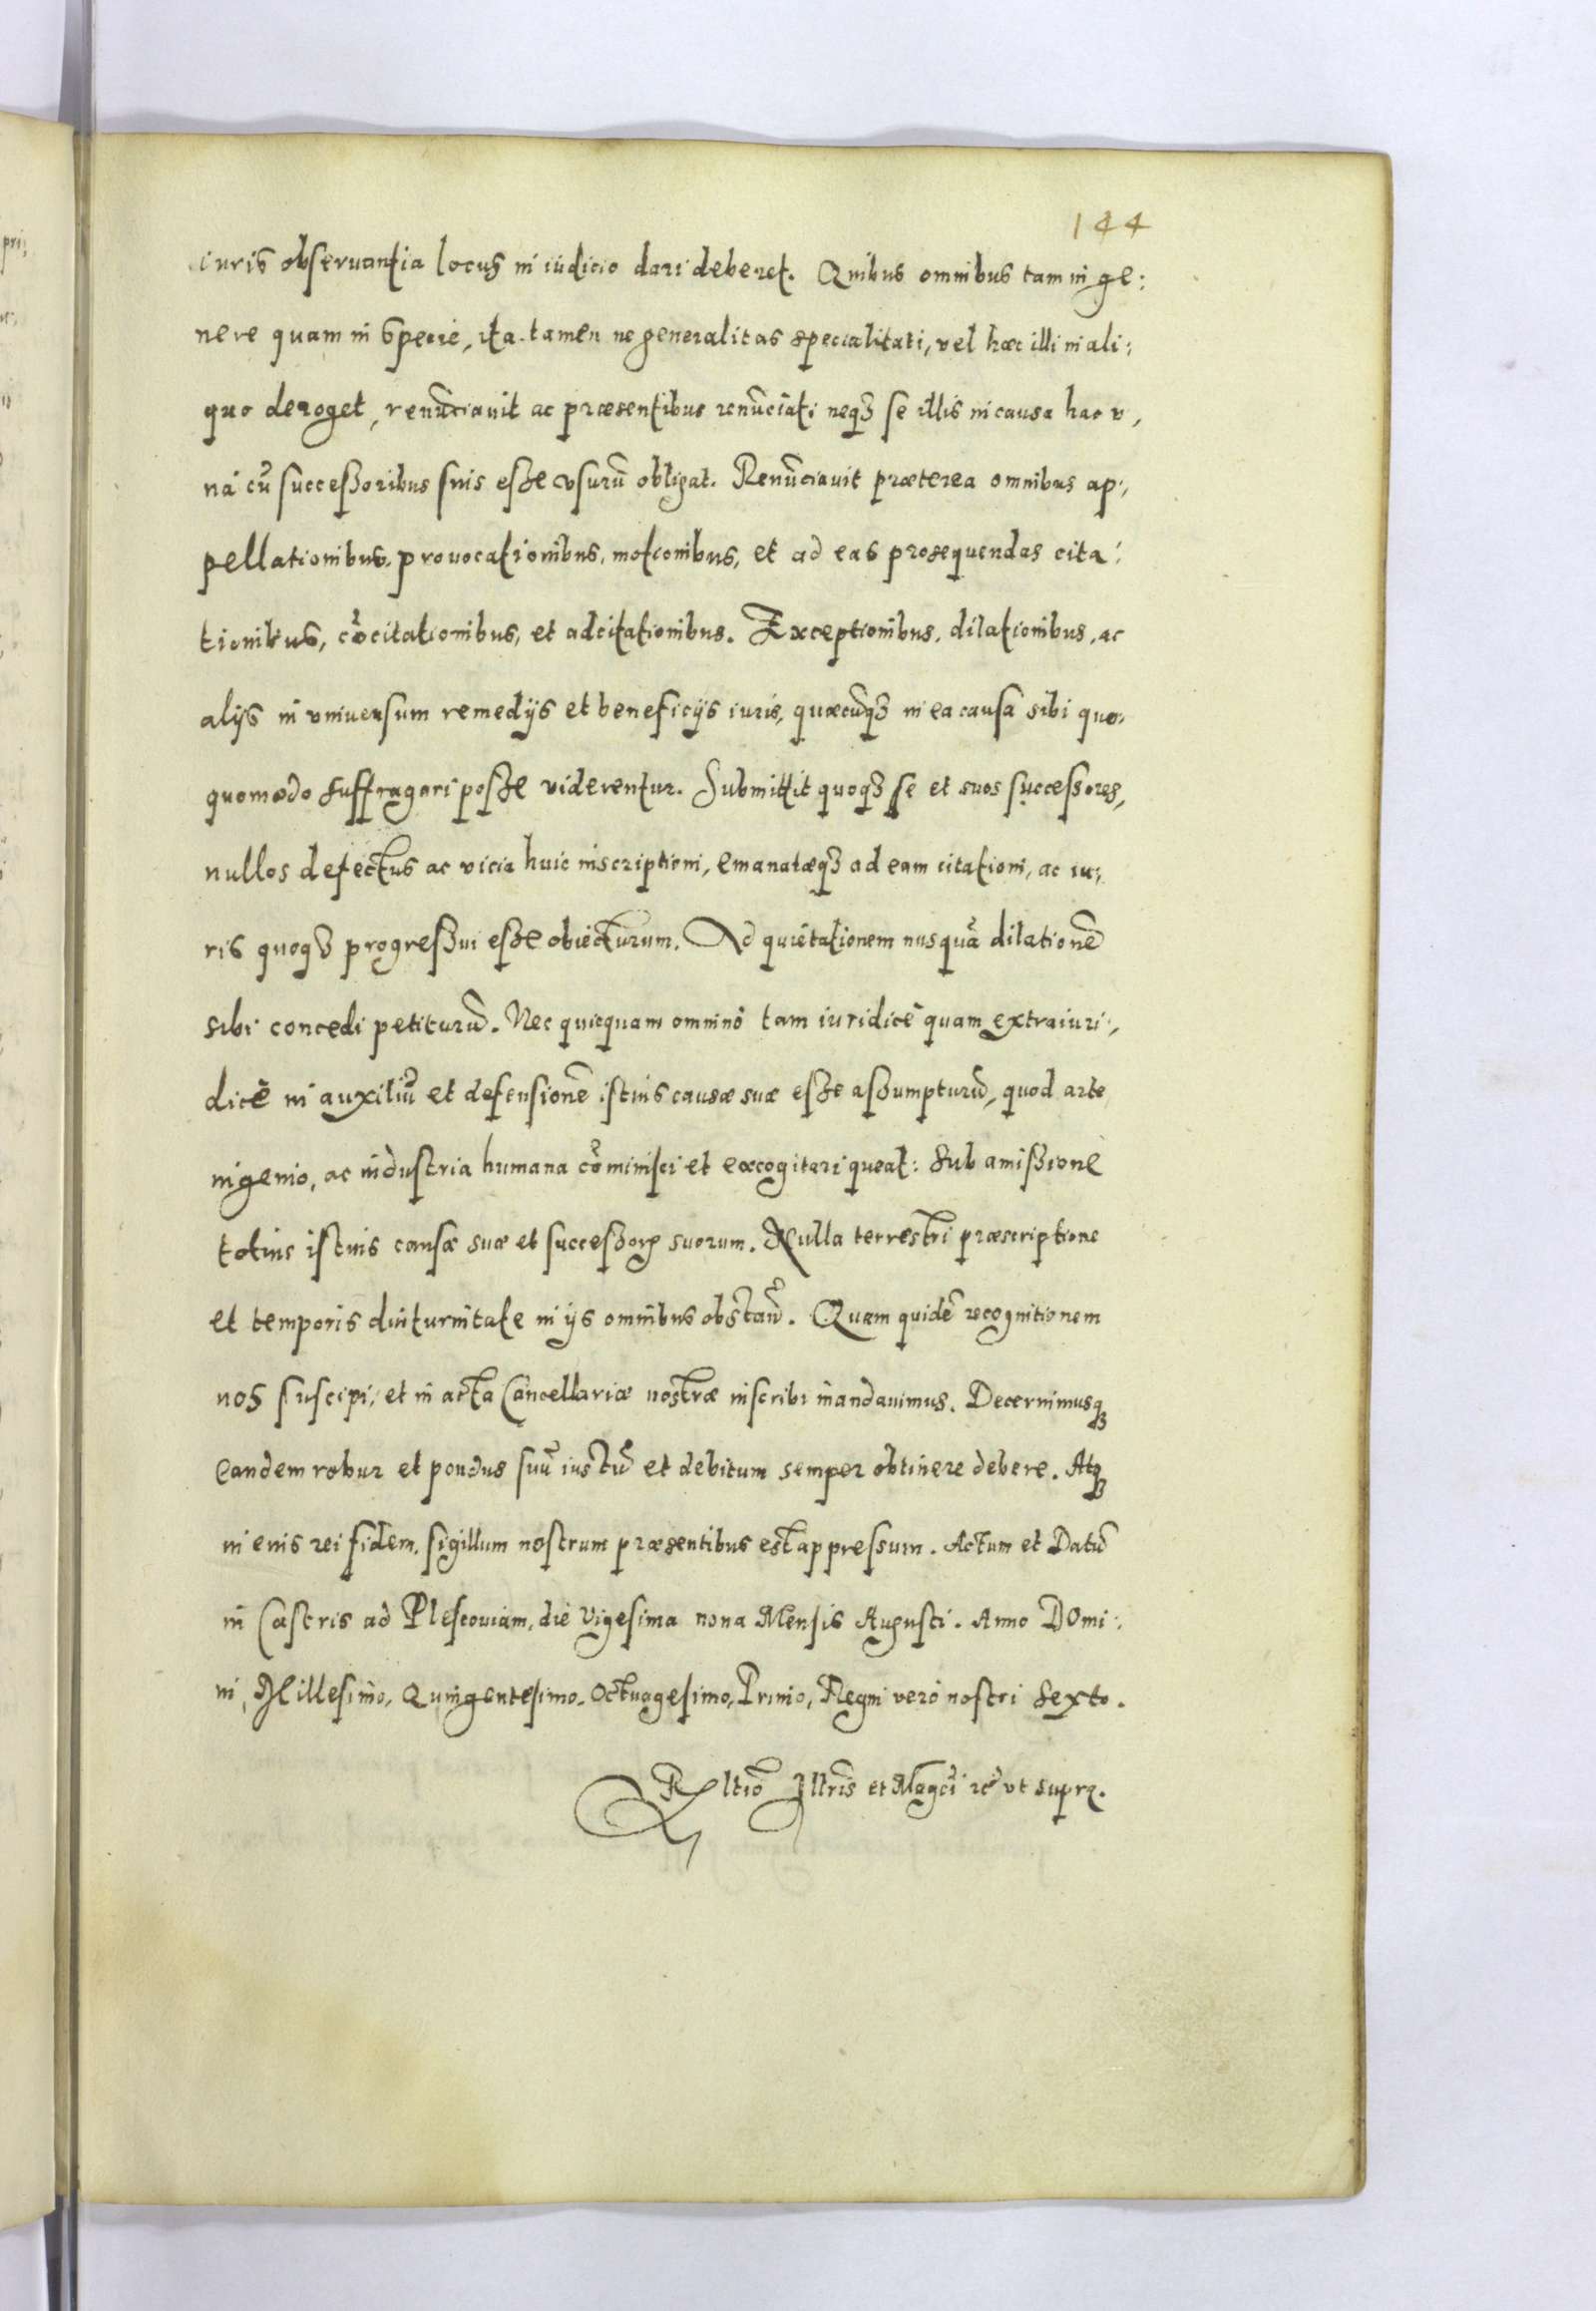 144
iuris obseruantia locus in iudicio dari deberet. Quibus omnibus tam in ge:
nere quam in specie, ita tamen ne generalitas specialitati, vel hæc illi in ali:
quo deroget, renũciauit ac præsentibus renũciat, neqꝫ se illis in causa hac v,
nà cũ successoribus suis esse vsurũ obligat. Renũciauit præterea omnibus ap:,
pellationibus, prouocationibus, motionibus, et ad eas prosequendas cita:
tionibus, cõcitationibus, et adcitationibus. Exceptionibus, dilationibus, ac
alijs in vniuersum remedijs et beneficijs iuris, quæcũqꝫ in ea causa sibi quo,
quomodo suffragari posse viderentur. Submittit quoqꝫ se et suos successores,
nullos defectus ac vicia huic inscriptioni, emanatæqꝫ ad eam citationi, ac iu:,
ris quoqꝫ progressui esse obiecturum. Ad quietationem nusquã dilationẽ
sibi concedi petiturũ. Nec quicquam omninò tam iuridicè quam extraiuri:,
dicè in auxiliũ et defensionẽ istius causæ suæ esse assumpturũ, quod arte
ingenio, ac industria humana cõminisci et excogitari queat: sub amissione
totius istius causæ suæ et successorꝝ suorum. Nulla terrestri præscriptione
et temporis diuturnitate in ijs omnibus obstañ. Quam quidẽ recognitionem
nos suscipi, et in acta Cancellariæ nostræ inscribi mandauimus. Decernimusqꝫ
eandem robur et pondus suũ iustũ et debitum semper obtinere debere. Atqꝫ
in eius rei fidem, sigillum nostrum præsentibus est appressum. Actum et Datũ
in Castris ad Plescouiam, die Vigesima nona Mensis Augusti. Anno Domi:
ni, Millesimo, Quingentesimo, Octuagesimo, Primo, Regni verò nostri Sexto.
Rltiõ Illris et Magci ꝛc̃ vt supra.